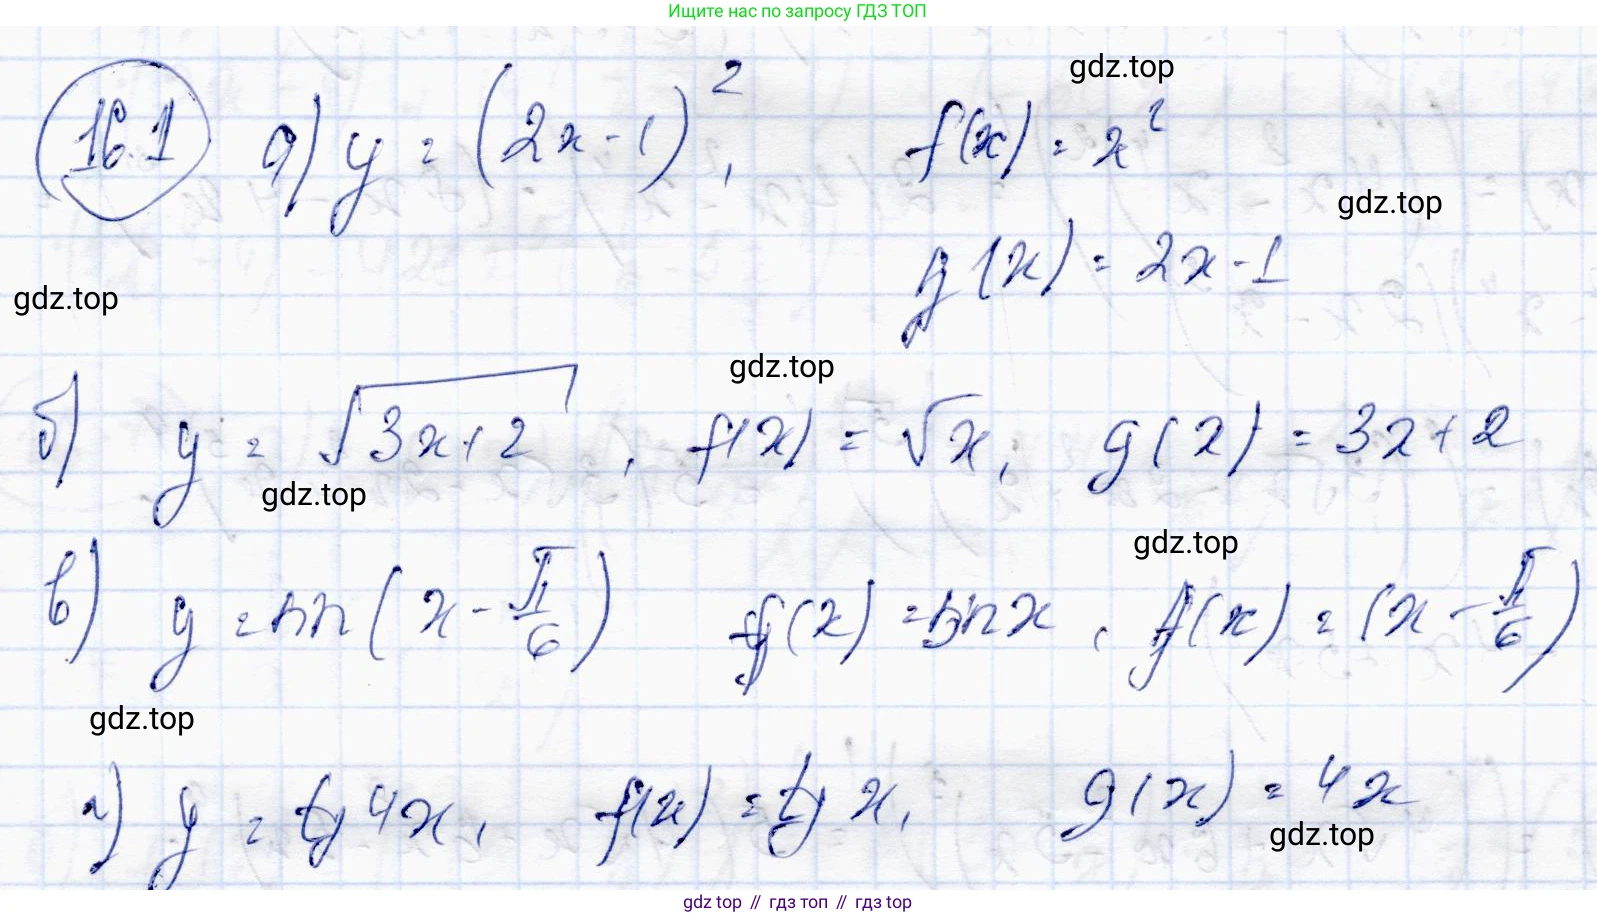 Ищите нас по запросу ГДЗ ТОП
gdz.top
16.1 а) y = (2x - 1)², f(x) = x²
gdz.top
g(x) = 2x - 1
gdz.top
gdz.top
б) y = √(3x + 2), f(x) = √x, g(x) = 3x + 2
gdz.top
gdz.top
в) y = sin(x - π/6) f(x) = sin x, g(x) = (x - π/6)
gdz.top
г) y = tg 4x, f(x) = tg x, g(x) = 4x
gdz.top
gdz top // гдз топ // гдз top